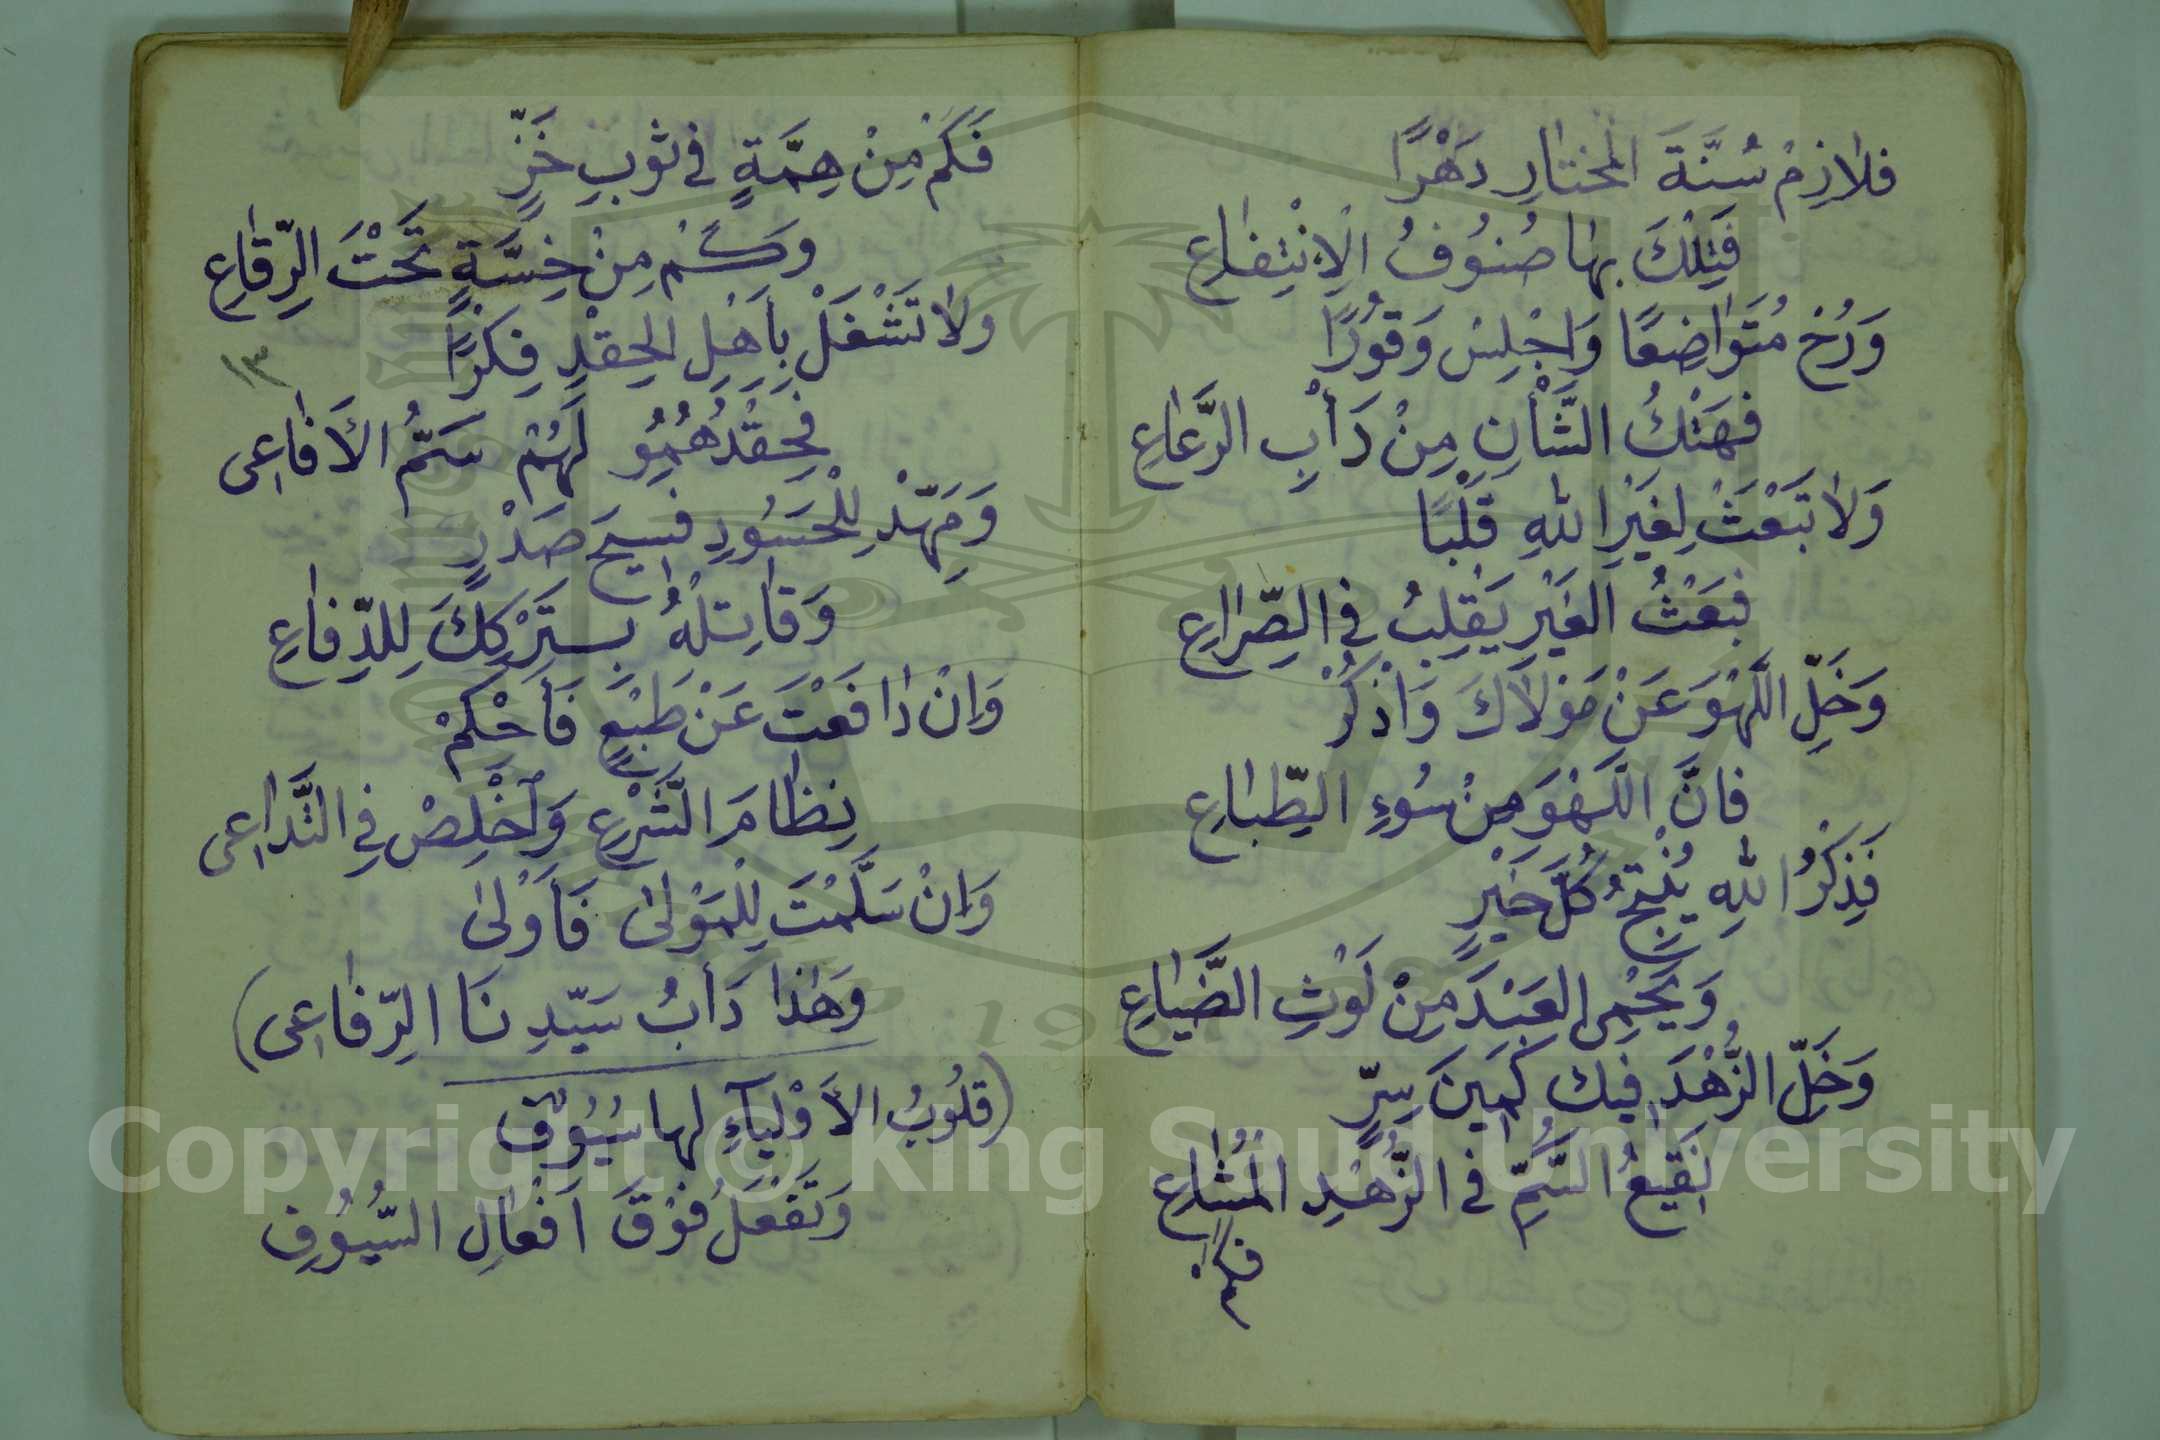 فلازِمْ سُنَّةَ المختارِ دَهْرًا
فَتِلْكَ بها صُنُوفُ الْاِنْتِفاعِ
وَرُحْ مُتَوَاضِعًا وَاجْلِسْ وَقوُرًا
فهَتْكُ الشَّأْنِ مِنْ دَأْبِ الرَّعاعِ
وَلا تَبْعَثْ لِغَيْرِ اللهِ قَلْبًا
فبَعْثُ الغَيْرِ يَقلِبُ في الصِّراعِ
وَخَلِّ اللَّهْوَ عَنْ مَوْلَاكَ وَاذْكُرْ
فانَّ اللَّهْوَ مِنْ سُوءِ الطِّباعِ
فَذِكْرُ اللهِ يُنْتِجُ كُلَّ خَيْرٍ
وَيَحْمِى العَبْدَ مِنْ لَوْثِ الضَّياعِ
وَخَلِّ الزُّهْدَ فيك كَمِينَ سِرٍّ
نَقيعُ السَّمِّ في الزُّهْدِ المُشاعِ
فكم
فَكَمْ مِنْ هِمَّةٍ في ثوبِ خَزٍّ
وكَمْ مِنْ خِسَّةٍ تَحْتَ الرِّقاعِ
ولا تَشْغَلْ بِأَهْلِ الحِقْدِ فِكرًا
١٣
فَحِقْدُهُمُو لَهُمْ سَمُّ الأَفاعِى
وَمَهِّدْ لِلْحَسُودِ فسيحَ صَدْرٍ
وَقاتِلْهُ بِتَرْكِكَ لِلدِّفاعِ
وَاِنْ دافَعْتَ عَنْ طَبْعٍ فَأَحْكِمْ
نِظامَ الشَّرْعِ وَأَخْلِصْ فِي التَّداعِى
وَاِنْ سَلَّمْتَ لِلْمَوْلىٰ فَأَوْلىٰ
وَهٰذا دَأبُ سَيِّدِنَا الرِّفاعِى)
(قلُوبُ الأَوْلياَءِ لها سُيُوفٌ
وَتَفْعَلُ فَوْقَ اَفْعالِ السُّيوُفِ
Copyright © King Saud University